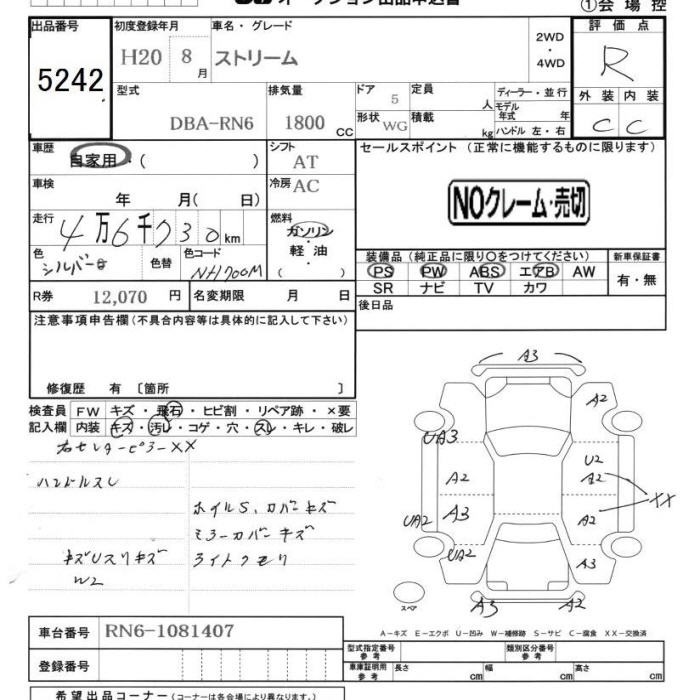 ①会場控
出品番号
5242
初度登録年月
H20 8月
車名・グレード
ストリーム
2WD
・
4WD
評価点
R
外装 内装
C C
型式
DBA-RN6
排気量
1800 CC
ドア
5
定員
人
形状
WG
積載
kg
ディーラー・並行
モデル年式 年
ハンドル 左・右
車歴
自家用・( )
シフト
AT
車検
年 月( 日)
冷房
AC
走行
4万6千730km
燃料
ガソリン
軽油
( )
色
シルバー
色替
色コード
NH700M
R券 12,070 円
名変期限 月 日
セールスポイント (正常に機能するものに限ります)
NOクレーム・売切
装備品 (純正品に限り○をつけてください)
新車保証書
PS PW ABS エアB AW
SR ナビ TV カワ
有・無
後日品
注意事項申告欄(不具合内容等は具体的に記入して下さい)
修復歴 有 〔箇所 〕
検査員
記入欄
FW キズ・飛石・ヒビ割・リペア跡・×要
内装 キズ・汚レ・コゲ・穴・スレ・キレ・破レ
右センターピラーXX
ハンドルスレ
ホイルS、カバーキズ
ミラーカバーキズ
キズUスリキズ
ライトクモリ
W2
A3
A2
UA3
A2
U2
A2
XX
A3
A2
UA2
UA2
A3
スペア
A3
A2
A-キズ E-エクボ U-凹み W-補修跡 S-サビ C-腐食 XX-交換済
車台番号 RN6-1081407
登録番号
型式指定番号
参考
類別区分番号
参考
車庫証明用
参考
長さ cm
幅 cm
高さ cm
希望出品コーナー(コーナーは各会場により異なります。)